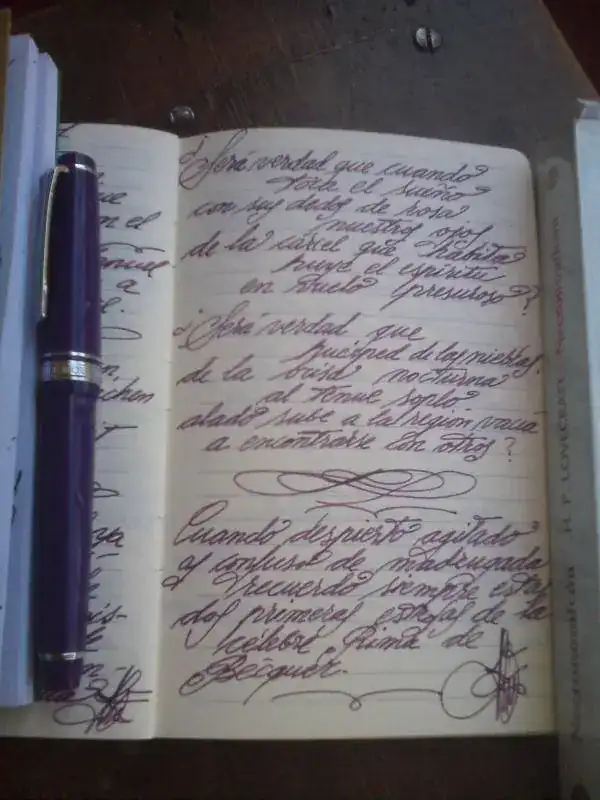 n el
a
chen
ya
¿Será verdad que cuando
toca el sueño
con sus dedos de rosa
nuestros ojos
de la cárcel que habita
huye el espíritu
en vuelo presuroso?
¿Será verdad que
huésped de las nieblas
de la brisa nocturna
al tenue soplo
alado sube a la región vacía
a encontrarse con otros?
Cuando despierto agitado
y confuso de madrugada
recuerdo siempre estas
dos primeras estrofas de la
célebre Rima de
Bécquer.
H. P. LOVECRAFT